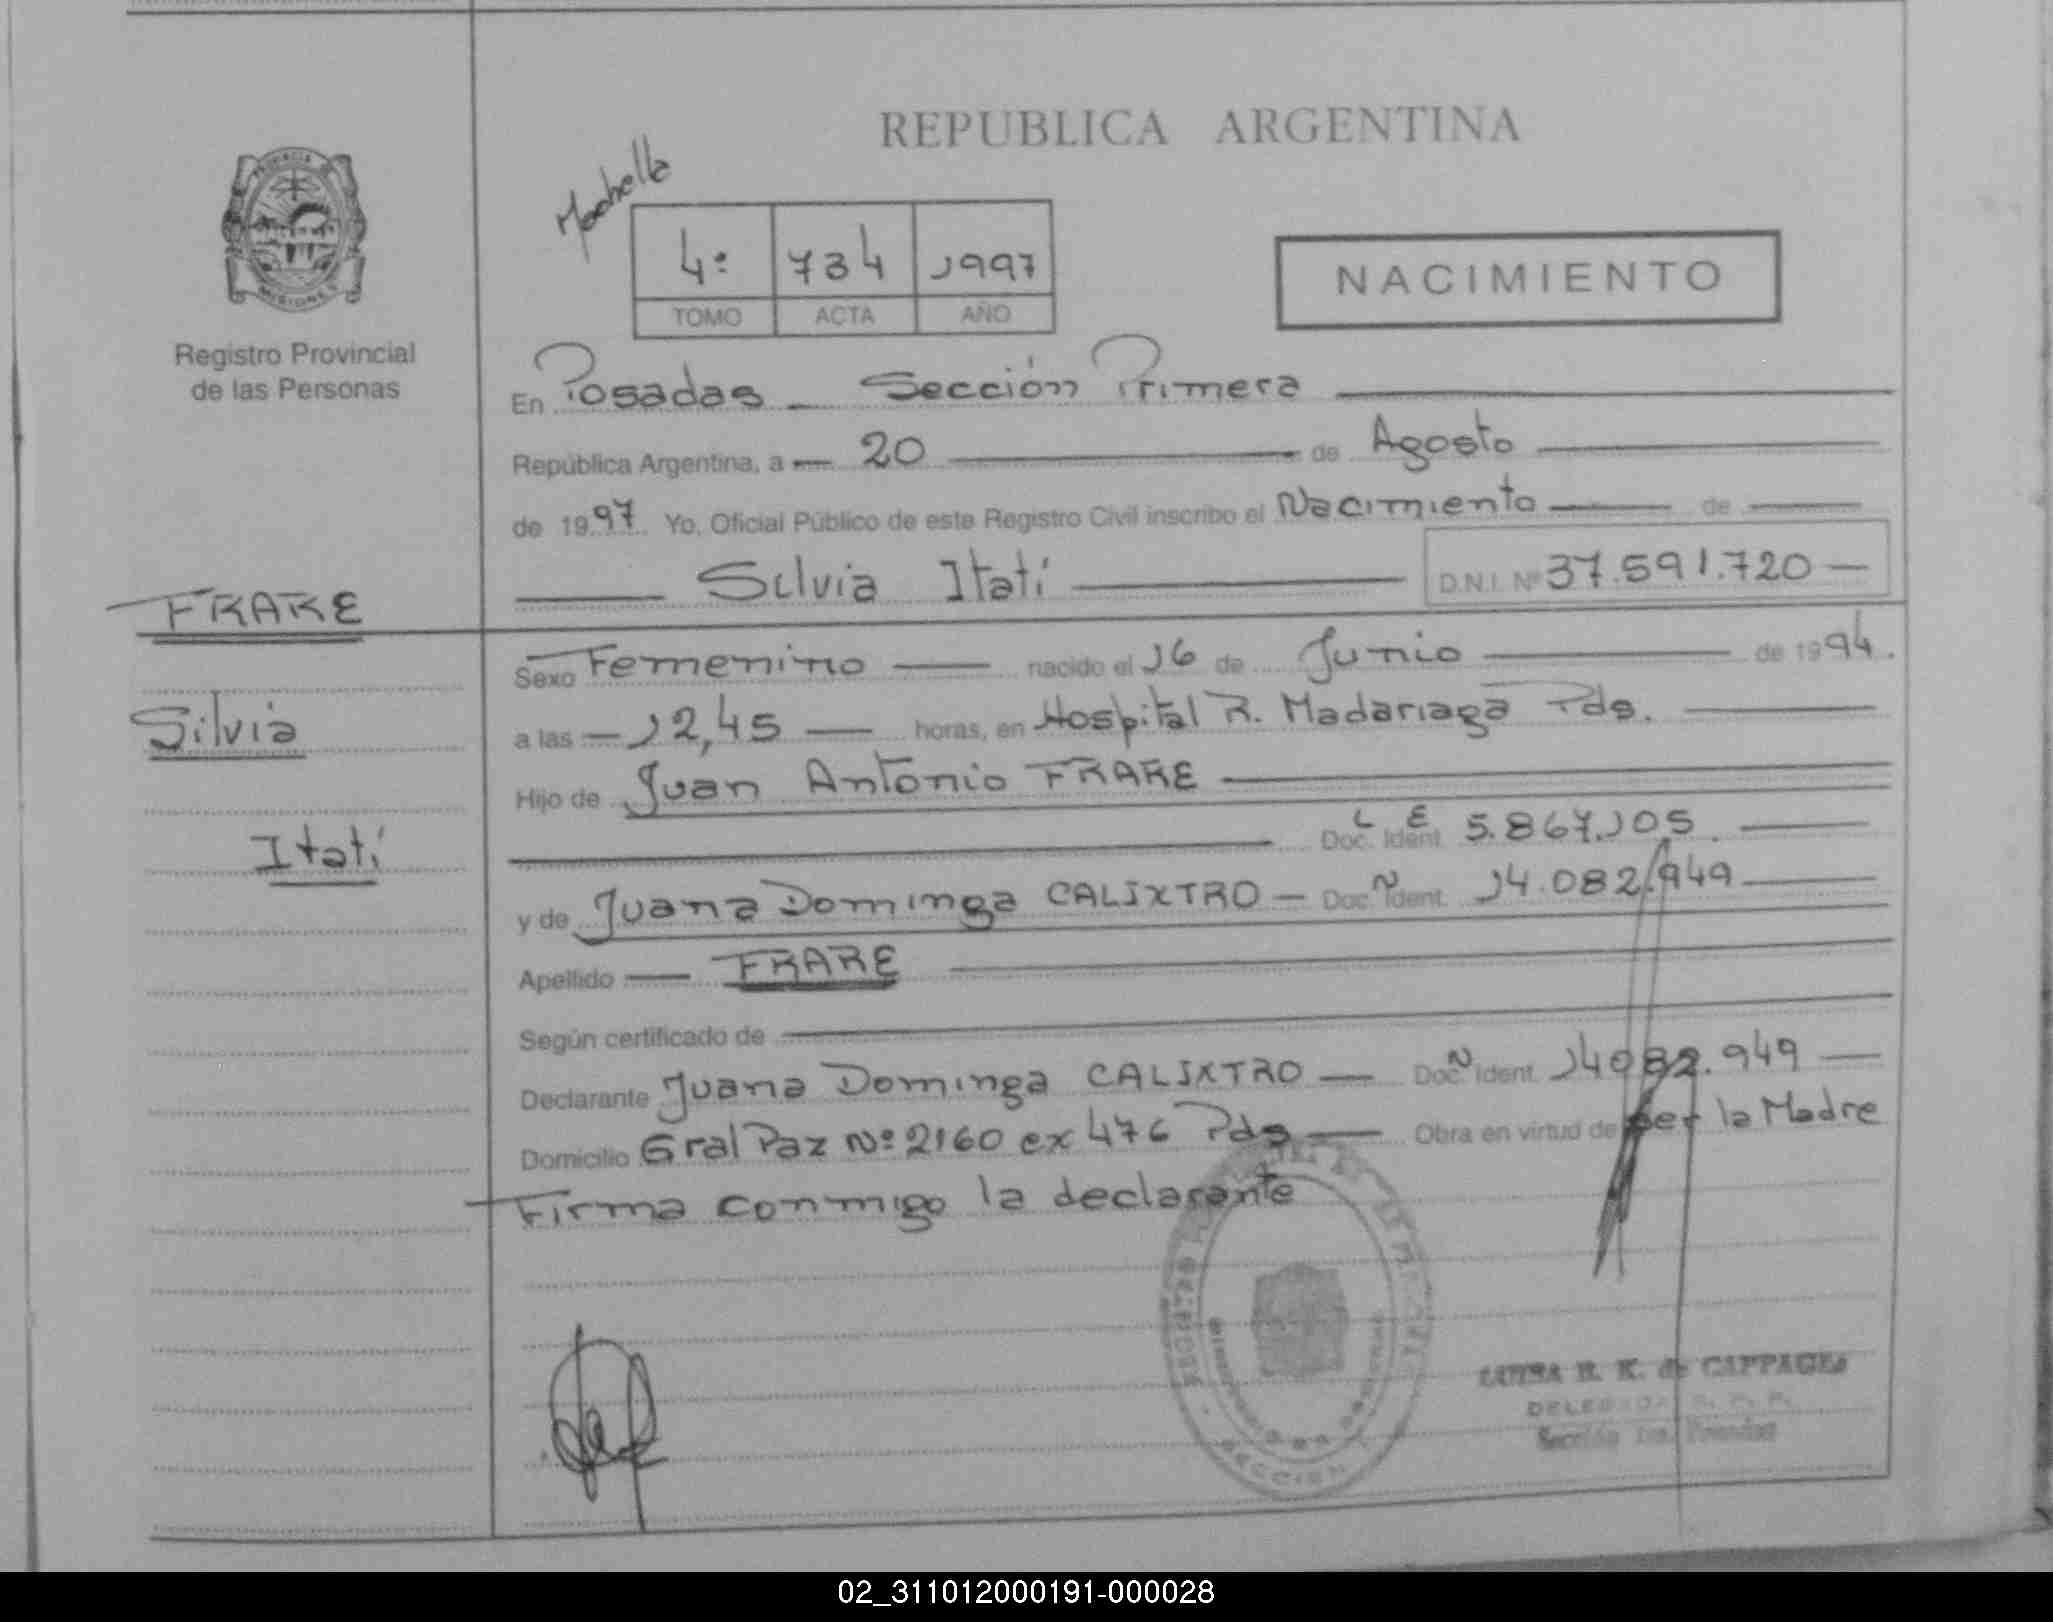 REPUBLICA ARGENTINA
PROVINCIA
MISIONES
Registro Provincial
de las Personas
4º 734 1997
TOMO ACTA AÑO
NACIMIENTO
En Posadas - Sección Primera
República Argentina, a 20 de Agosto
de 1997 Yo, Oficial Público de este Registro Civil inscribo el Nacimiento de
Silvia Itatí D.N.I. Nº 37.591.720
FRARE
Silvia
Itatí
Sexo Femenino nacido el 16 de Junio de 1994.
a las 12,45 horas, en Hospital R. Madariaga Pds.
Hijo de Juan Antonio FRARE
Doc. Ident. L E 5.867.105
y de Juana Dominga CALIXTRO - Doc. Ident. N 14.082.949
Apellido FRARE
Según certificado de
Declarante Juana Dominga CALIXTRO - Doc. Ident. N 14082.949
Domicilio Gral Paz Nº 2160 ex 476 Pds - Obra en virtud de ser la Madre
Firma conmigo la declarante
SECCION
R. K. de CAPPAGLI
DELEGADA R. P. P.
Sección 1ra. Posadas
02_311012000191-000028